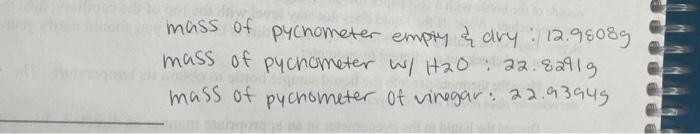 mass of pycnometer empty & dry : 12.9808g
mass of pycnometer w/ H2O : 22.8291g
mass of pycnometer of vinegar : 22.9394g